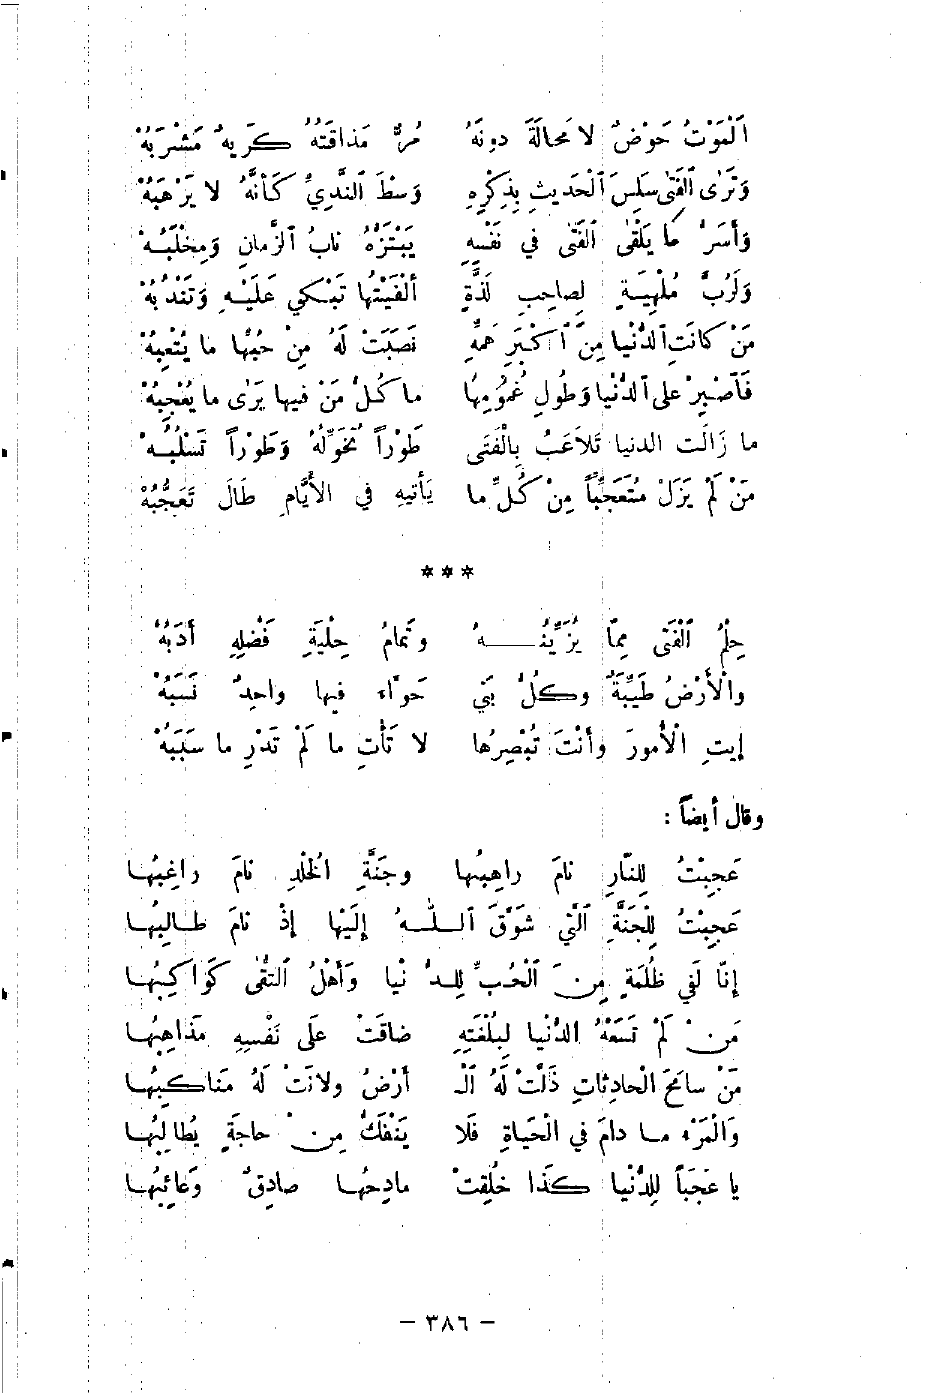 اَلْمَوْتُ حَوْضٌ لا مَحالَةَ دونَهُ مُرٌّ مَذاقَتُهُ كَرِيهٌ مَشْرَبُهْ
وَتَرَى الفَتَى سَلِسَ اَلْحَدِيثِ بِذِكْرِهِ وَسْطَ اَلنَّدِيِّ كَأَنَّهُ لا يَرْهَبُهْ
وَأَسَرُّ ما يَلْقَى الفَتَى في نَفْسِهِ يَبْتَزُّهُ نابُ اَلزَّمانِ وَمِخْلَبُهْ
وَلَرُبَّ مُلْهِيَةٍ لِصاحِبِ لَذَّةٍ أَلْفَيْتُها تَبْكي عَلَيْهِ وَتَنْدُبُهْ
مَنْ كانَتِ اَلدُّنْيا مِنَ اَكْبَرِ هَمِّهِ نَصَبَتْ لَهُ مِنْ حُبِّها ما يُتْعِبُهْ
فَاَصْبِرْ على اَلدُّنْيا وَطُولِ غُمُومِها ما كُلُّ مَنْ فيها يَرَى ما يُعْجِبُهْ
ما زَالَت الدنيا تَلاَعَبُ بِالْفَتَى طَوْراً تُخَوِّلُهُ وَطَوْراً تَسْلُبُهْ
مَنْ لَمْ يَزَلْ مُتَعَجِّباً مِنْ كُلِّ ما يَأتيهِ في الأَيَّامِ طَالَ تَعَجُّبُهْ
***
حِلْمُ اَلْفَتَى مِمّا يُزَيِّنُهُ وتَمامُ حِلْيَةِ فَضْلِهِ أَدَبُهْ
والْأَرْضُ طَيِّبَةٌ وكُلُّ بَنِي حَوّاءَ فيها واحِدٌ نَسَبُهْ
إيتِ الْأُمورَ وأَنْتَ تُبْصِرُها لا تَأْتِ ما لَمْ تَدْرِ ما سَبَبُهْ
وقال أيضاً :
عَجِبْتُ لِلنّارِ نامَ راهِبُها وجَنَّةِ الْخُلْدِ نامَ راغِبُها
عَجِبْتُ لِلْجَنَّةِ اَلَّتي شَوَّقَ اَللّٰهُ إِلَيْها إِذْ نامَ طالِبُها
إِنّا لَفي ظُلْمَةٍ مِنَ اَلْحُبِّ لِلدُّنْيا وَأَهْلُ اَلتُّقَى كَوَاكِبُها
مَنْ لَمْ تَسَعْهُ الدُّنْيا لِبُلْغَتِهِ ضاقَتْ عَلَى نَفْسِهِ مَذاهِبُها
مَنْ سامَحَ الْحادِثاتِ ذَلَّتْ لَهُ اَلْـ أَرْضُ ولانَتْ لَهُ مَناكِبُها
وَالْمَرْءُ ما دامَ في الْحَياةِ فَلا يَنْفَكُّ مِنْ حاجَةٍ يُطالِبُها
يا عَجَباً لِلدُّنْيا كَذَا خُلِقَتْ مادِحُها صادِقٌ وَعائِبُها
– ٣٨٦ –